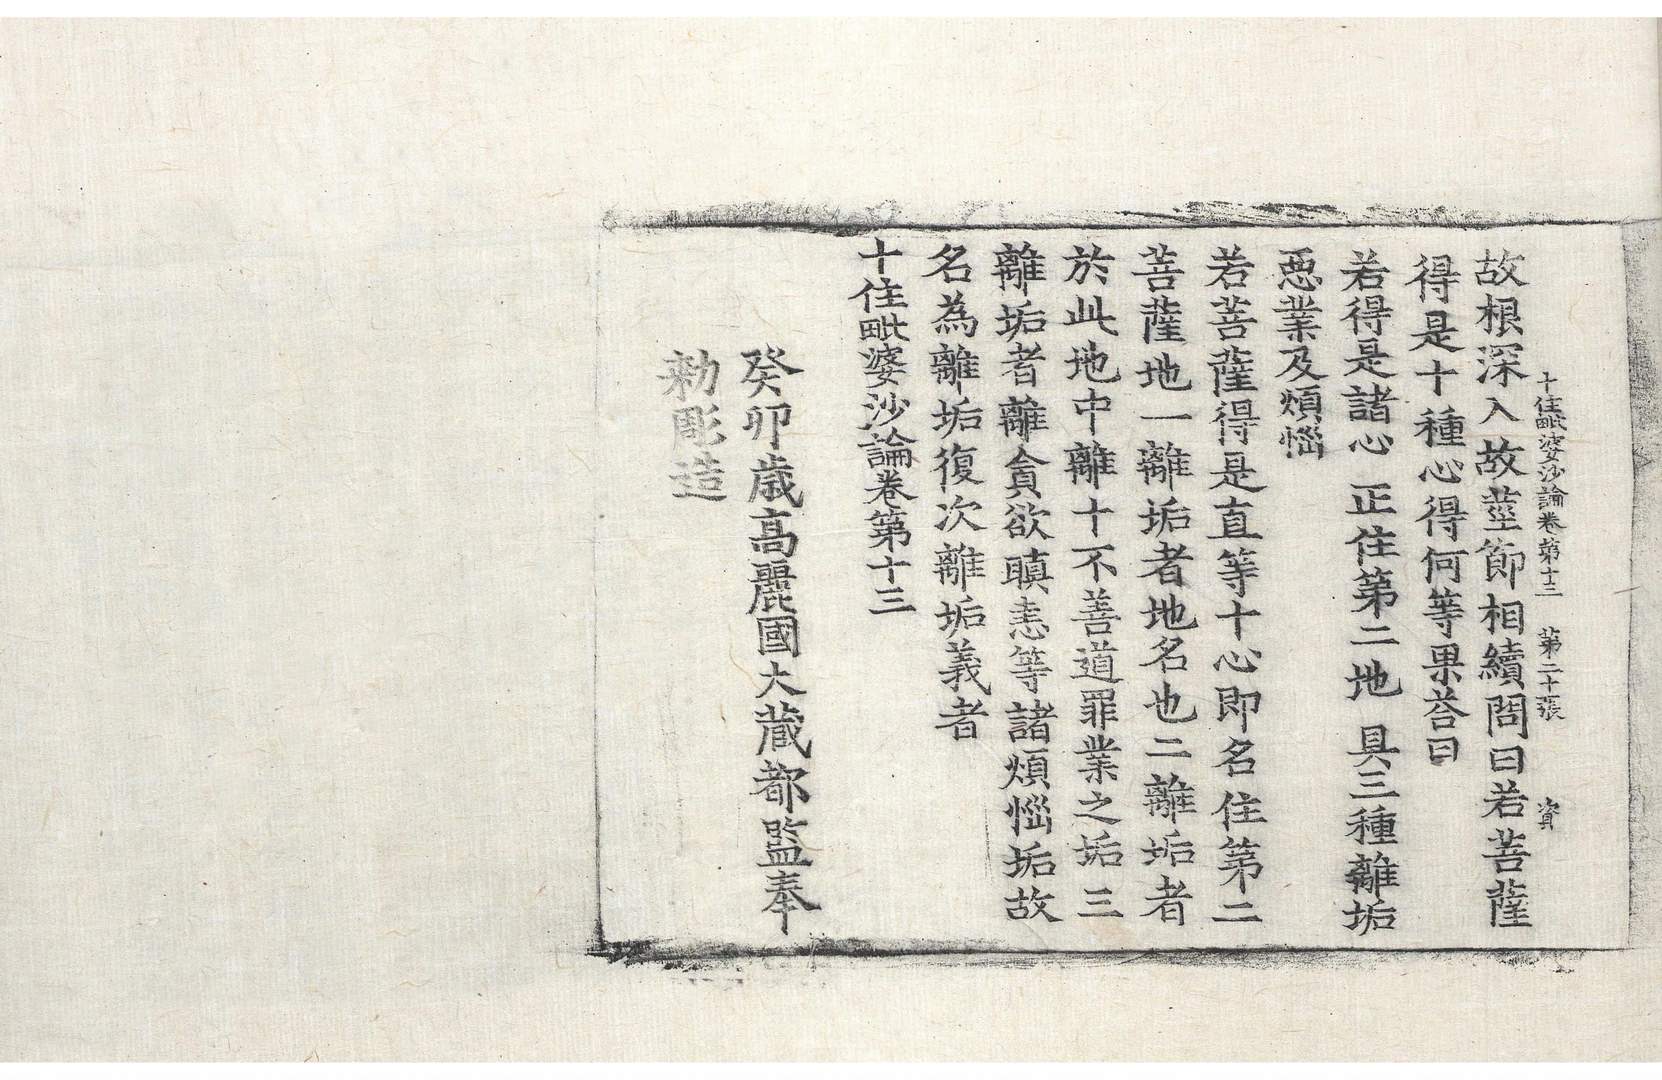 十住毗婆沙論卷第十三 第二十張 資
故根深入故莖節相續問曰若菩薩
得是十種心得何等果荅曰
若得是諸心 正住第二地 具三種離垢
惡業及煩惱
若菩薩得是直等十心即名住第二
菩薩地一離垢者地名也二離垢者
於此地中離十不善道罪業之垢三
離垢者離貪欲瞋恚等諸煩惱垢故
名為離垢復次離垢義者
十住毗婆沙論卷第十三
癸卯歲高麗國大藏都監奉
勑彫造